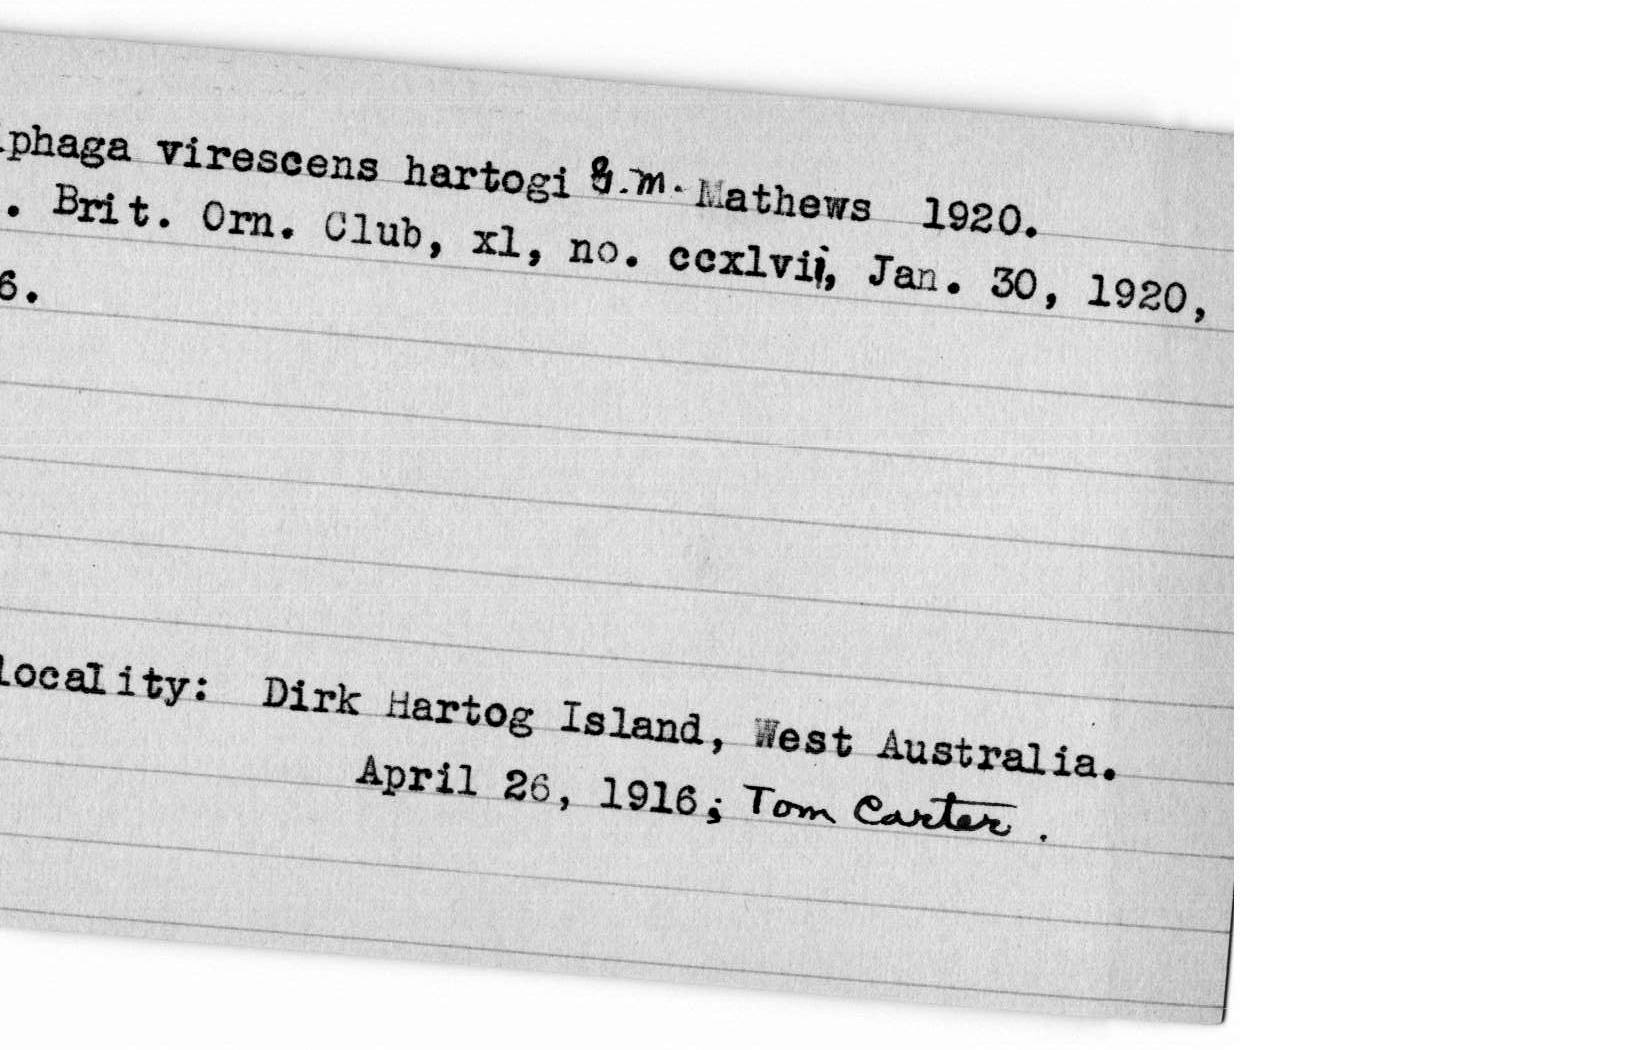 phaga virescens hartogi G.M. Mathews 1920.
. Brit. Orn. Club, xl, no. ccxlvii, Jan. 30, 1920,
6.
locality: Dirk Hartog Island, West Australia.
April 26, 1916; Tom Carter.